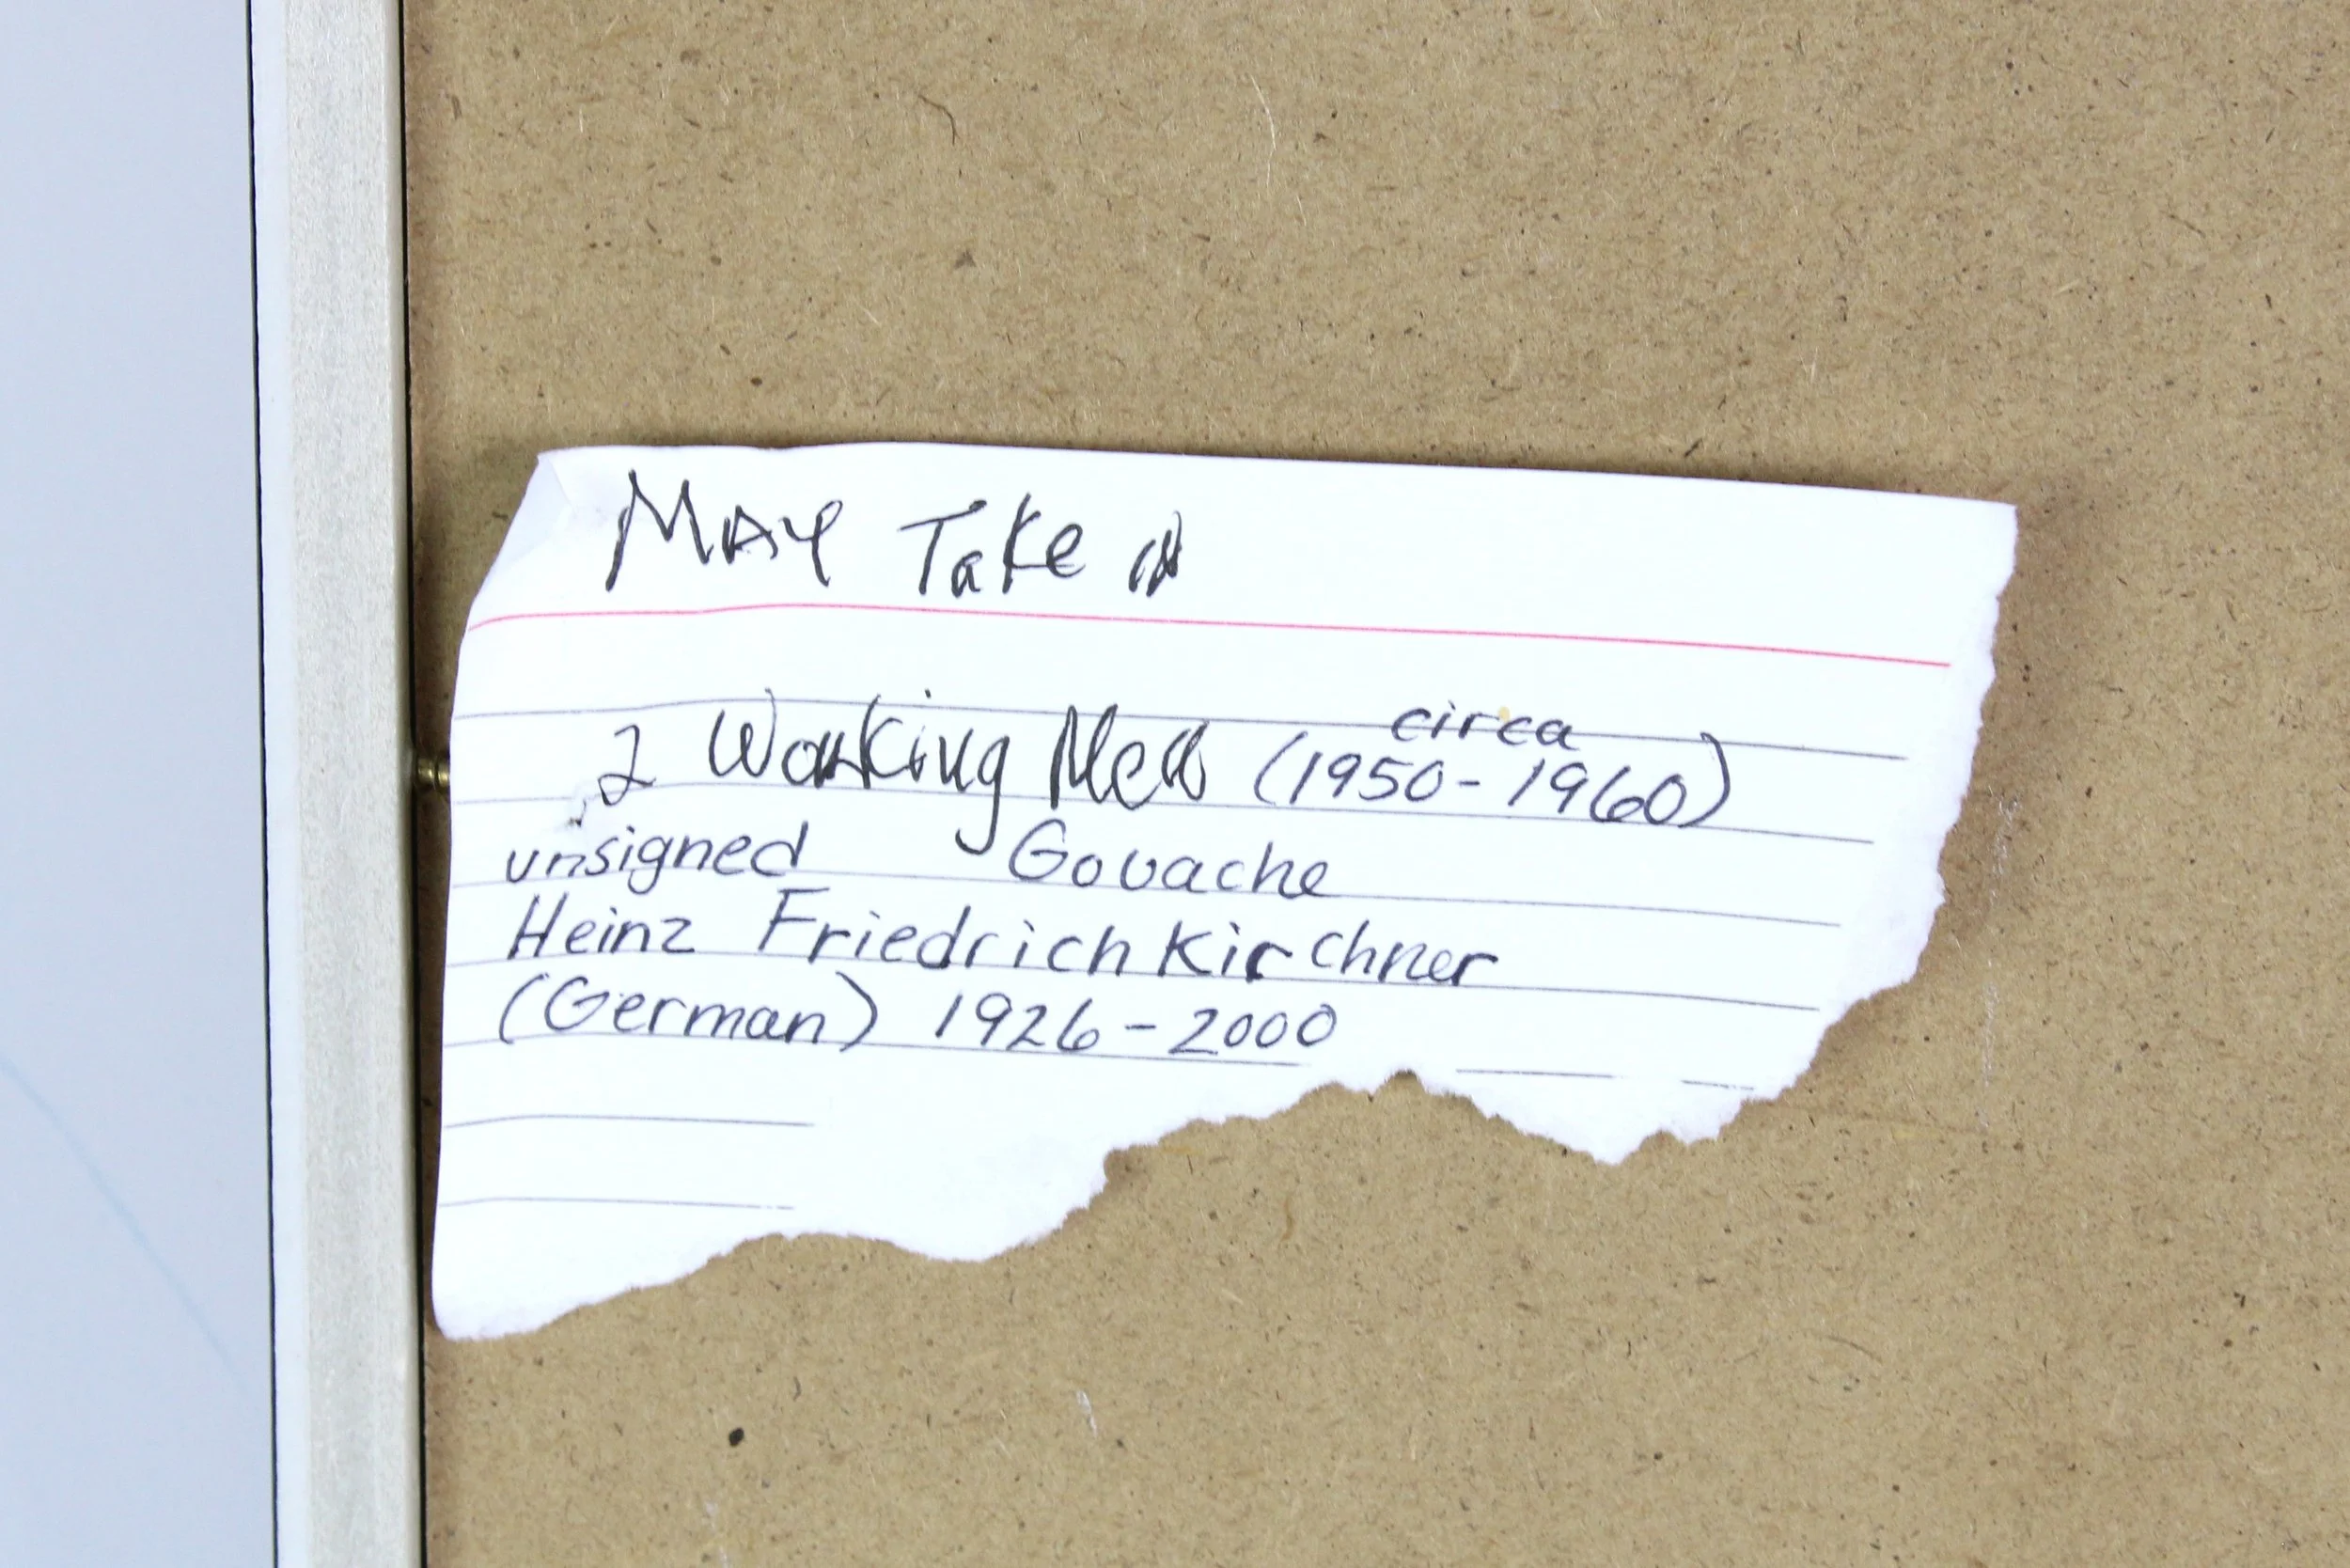 MAY Take
circa
2 Working Men (1950-1960)
unsigned Gouache
Heinz Friedrich Kirchner
(German) 1926-2000